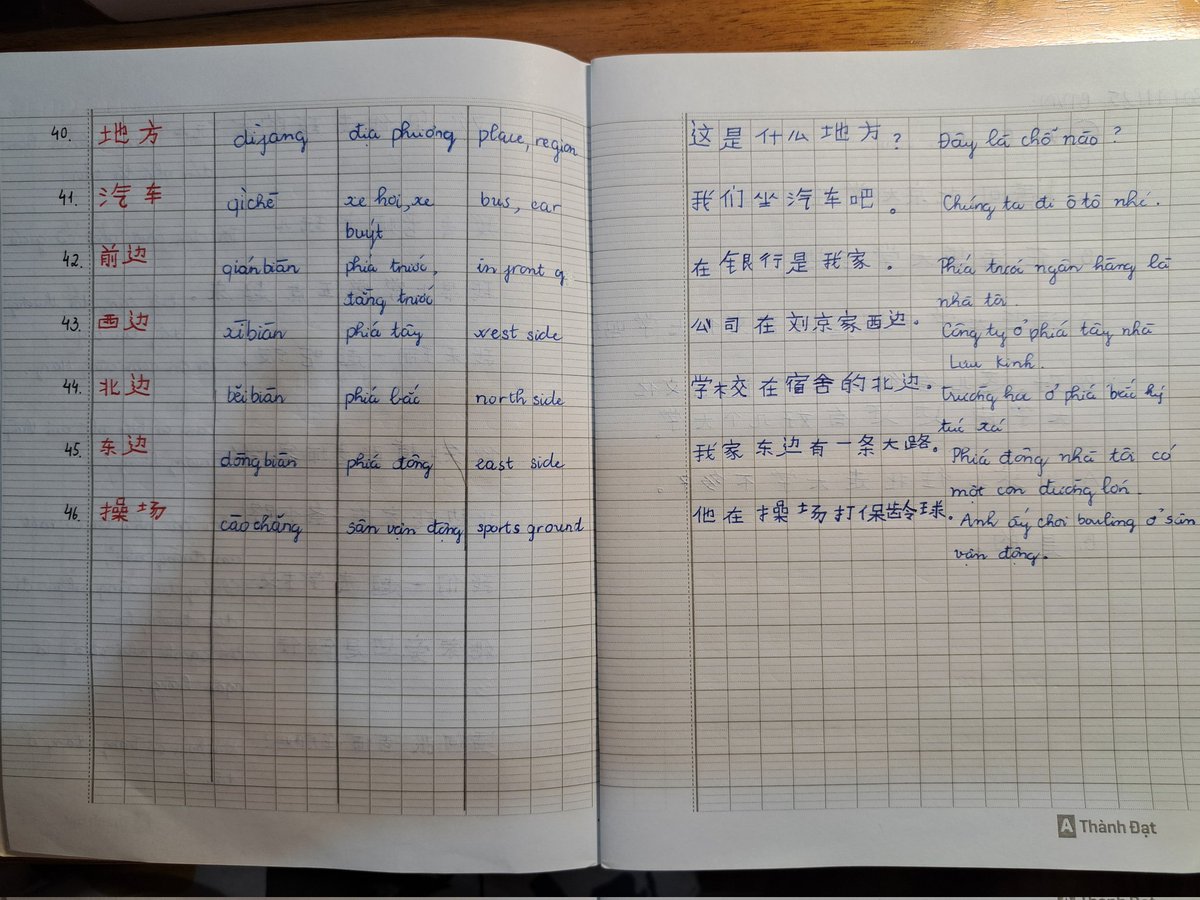 40. 地方 dìfang địa phương place, region
41. 汽车 qìchē xe hơi, xe bus, car
buýt
42. 前边 qiánbiān phía trước, in front of
tầng trước
43. 西边 xībiān phía tây west side
44. 北边 běibiān phía bắc north side
45. 东边 dōngbiān phía đông east side
46. 操场 cāochǎng sân vận động sports ground
这是什么地方? Đây là chỗ nào?
我们坐汽车吧。 Chúng ta đi ô tô nhé.
在银行是我家。 Phía trước ngân hàng là
nhà tôi.
公司在刘京家西边。 Công ty ở phía tây nhà
Lưu Kinh.
学校在宿舍的北边。 Trường học ở phía bắc ký
túc xá
我家东边有一条大路。 Phía đông nhà tôi có
một con đường lớn.
他在操场打保龄球。 Anh ấy chơi bouling ở sân
vận động.
A Thành Đạt